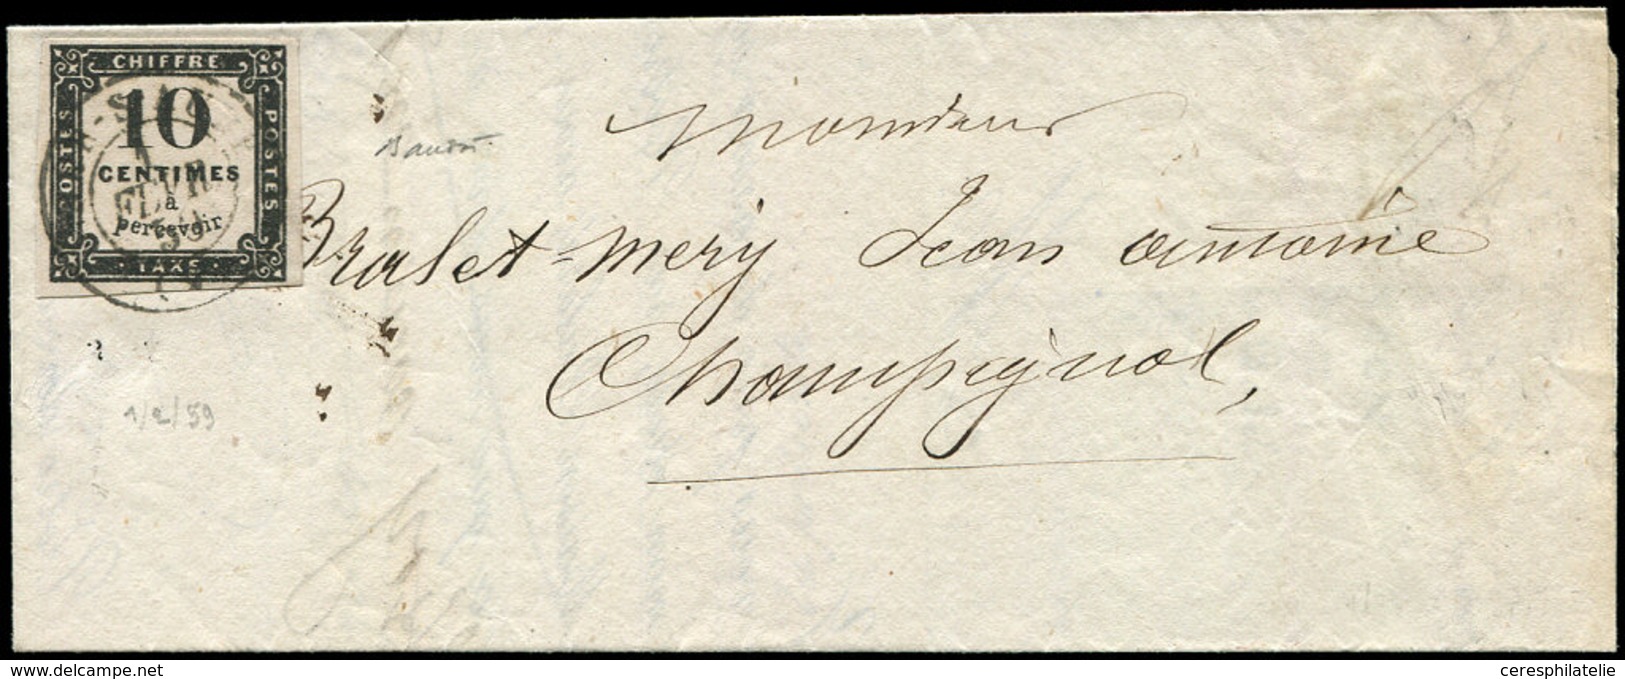 CHIFFRE
POSTES
POSTES
10
CENTIMES
à
percevoir
TAXE
FEVR
59
Monsieur
Bralet-Mery Jean antoine
Champagnol,
1/2/59
© delcampe.net
ceresphilatelie